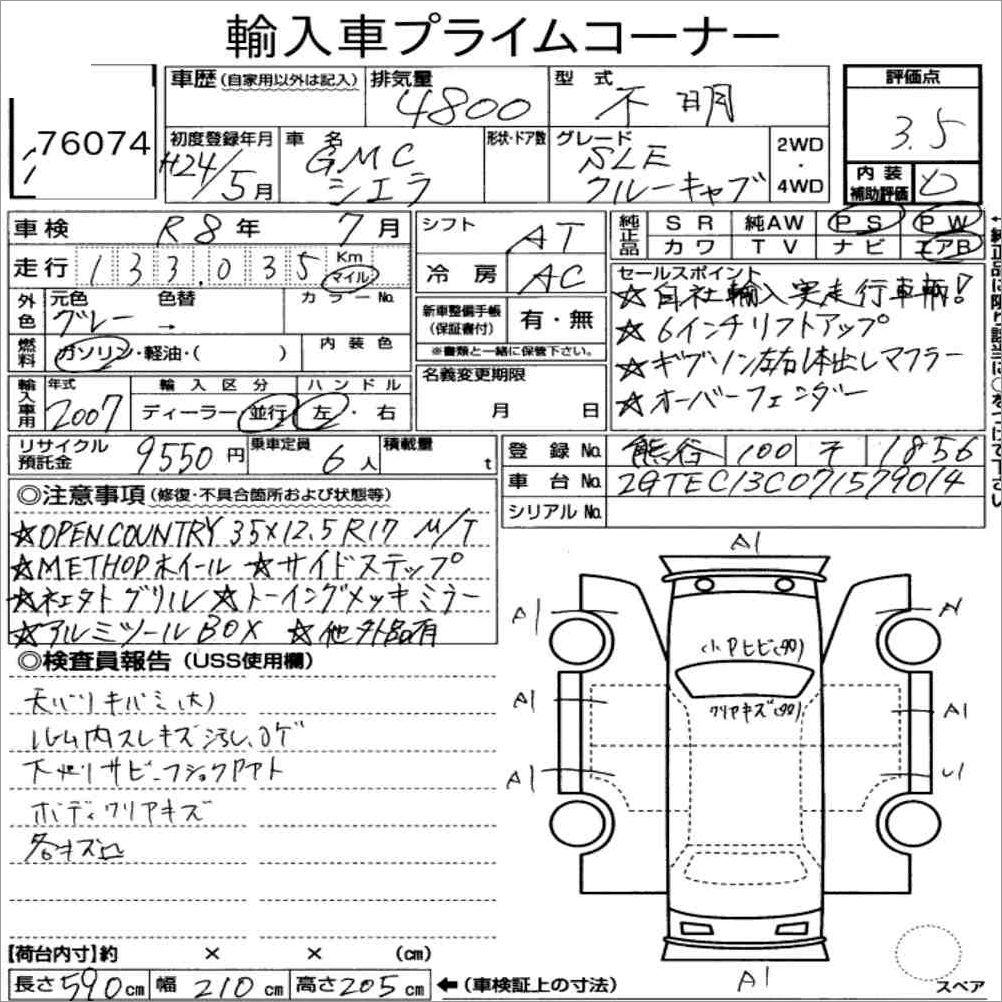 輸入車プライムコーナー
76074
車歴 (自家用以外は記入) 排気量 4800 型式 不明 評価点 3.5
初度登録年月 H24/5月 車名 GMC シエラ 形状・ドア数 グレード SLE クルーキャブ 2WD・4WD 内装補助評価 D
車検 R8年 7月 シフト AT 純正品 SR 純AW PS PW
カワ TV ナビ エアB
走行 133,035 Km マイル 冷房 AC
外色 元色 グレー 色替 → カラーNo.
新車整備手帳 (保証書付) 有・無
※書類と一緒に保管下さい。
燃料 ガソリン・軽油・( ) 内装色
セールスポイント
☆自社輸入実走行車輌!
☆6インチリフトアップ
☆ギブソン左右1本出しマフラー
☆オーバーフェンダー
輸入車用 年式 2007 輸入区分 ディーラー 並行 ハンドル 左・右
名義変更期限 月 日
リサイクル預託金 9550円 乗車定員 6人 積載量 t
登録No. 熊谷 100 そ 1856
車台No. 2GTEC13C071579014
シリアルNo.
◎注意事項 (修復・不具合箇所および状態等)
☆OPEN COUNTRY 35×12.5R17 M/T
☆METHODホイール ☆サイドステップ
☆社外グリル ☆トーイングメッキミラー
☆アルミツールBOX ☆他外品有
◎検査員報告 (USS使用欄)
天バリキバミ(大)
ルーム内スレキズ汚レ、コゲ
下廻りサビ
ボディクリアキズ
各キズ凹
A1
A1 A1
小 アヒビ(90)
クリアキズ(90)
A1 A1
A1 U1
A1
スペア
【荷台内寸】約 × × (cm)
長さ590cm 幅210cm 高さ205cm ←(車検証上の寸法)